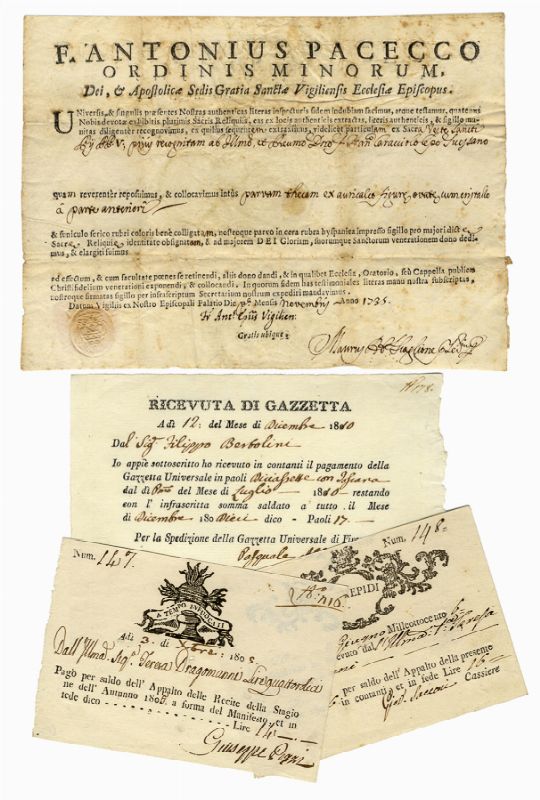 F. ANTONIUS PACECCO
ORDINIS MINORUM,
Dei, & Apostolicæ Sedis Gratia Sanctæ Vigiliensis Ecclesiæ Episcopus.
UNiversis, & singulis præsentes Nostras authenticas literas inspecturis fidem indubiam facimus, atque testamur, quatenus
Nobis devotæ exhibitis plurimis Sacris Reliquiis, eas ex locis authenticis extractas, literis authenticis, & sigillo mu-
nitas diligenter recognovimus, ex quibus sequentem extraximus, videlicet particulam ex Sacra Veste Sancti
quam reverenter reposuimus, & collocavimus intus parvam thecam ex auricalco figuræ ovatæ cum cristallo
à parte anteriori
& funiculo serico rubri coloris benè colligatam, nostroque parvo in cera rubra hyspanica impresso sigillo pro majori dictæ
Sacræ Reliquiæ identitate obsignatam, & ad majorem DEI Gloriam, suorumque Sanctorum venerationem dono dedi-
mus, & elargiti fuimus
ad effectum, & cum facultate pœnes se retinendi, aliis dono dandi, & in qualibet Ecclesia, Oratorio, seù Cappella publicæ
Christifidelium venerationi exponendi, & collocandi. In quorum fidem has testimoniales literas manu nostra subscriptas,
nostroque firmatas sigillo per infrascriptum Secretarium nostrum expediri mandavimus.
Datum Vigiliis ex Nostro Episcopali Palatio Die Mensis Novembris Anno
Gratis ubique
Maurus
RICEVUTA DI GAZZETTA
Adì 12: del Mese di Dicembre 1810
Dal Sig. Filippo Bertolini
Io appiè sottoscritto ho ricevuto in contanti il pagamento della
Gazzetta Universale in paoli Diciassette con
dal dì Pmo del Mese di Luglio 1810 restando
con l' infrascritta somma saldato a tutto il Mese
di Dicembre 180 Dieci dico - Paoli 17.-
Per la Spedizione della Gazzetta Universale di
Pasquale
Num. 147.
A TEMPO INFUOCATI
Adì 3. di
Dall' Teresa Dragomanni
Pagò per saldo dell' Appalto delle Recite della Stagio
ne dell' Autunno 180 a forma del Manifesto, et in
fede dico Lire 14
Giuseppe
Num. 148.
EPIDI
Giugno Millottocento
evuto dal
per saldo dell' Appalto della presente
in contanti, et in fede Lire 16
Cassiere